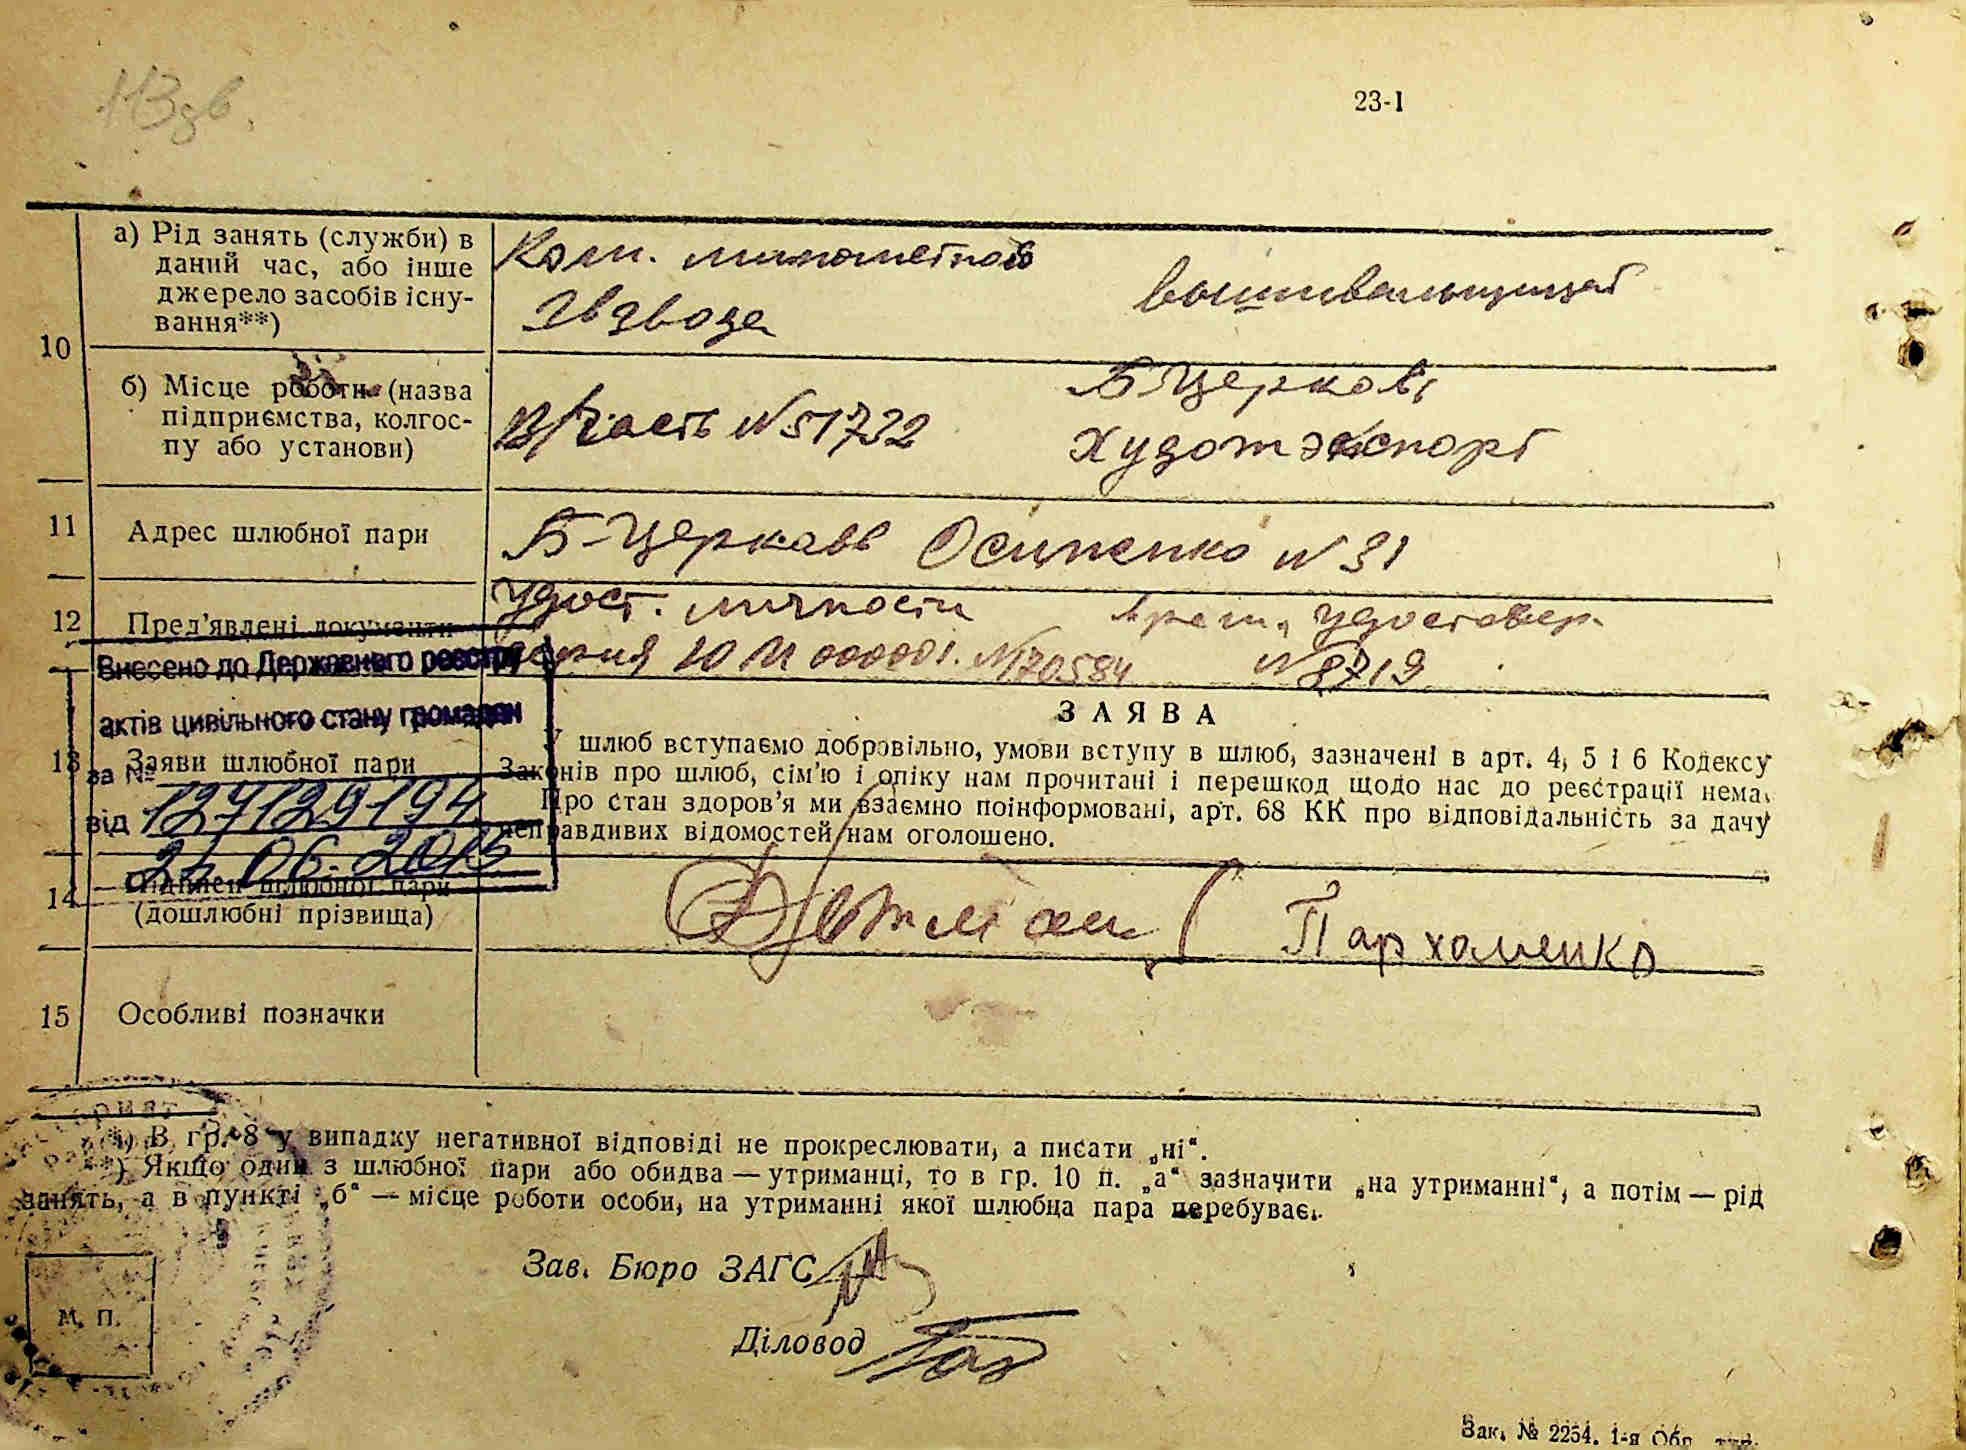 113 зв.
23-І
10
а) Рід занять (служби) в
даний час, або інше
джерело засобів існу-
вання**)
Ком. минометного
взвода
вышивальщица
б) Місце роботи (назва
підприємства, колгос-
пу або установи)
В/часть №51732
Б-Церковь
Художэкспорт
11
Адрес шлюбної пари
Б-Церковь Осипенко №31
12
Пред'явлені документи
Удост. личности
серия ЮИ 000001. №170584
врем. удостовер.
№8719
Внесено до Державного реєстру
актів цивільного стану громадян
за №
127129194
від 24.06.2015
13
Заяви шлюбної пари
ЗАЯВА
У шлюб вступаємо добровільно, умови вступу в шлюб, зазначені в арт. 4, 5 і 6 Кодексу
Законів про шлюб, сім'ю і опіку нам прочитані і перешкод щодо нас до реєстрації нема.
Про стан здоров'я ми взаємно поінформовані, арт. 68 КК про відповідальність за дачу
неправдивих відомостей нам оголошено.
14
Підписи шлюбної пари
(дошлюбні прізвища)
Пархоменко
15
Особливі позначки
*) В гр. 8 у випадку негативної відповіді не прокреслювати, а писати „ні“.
**) Якщо один з шлюбної пари або обидва — утриманці, то в гр. 10 п. „а“ зазначити „на утриманні“, а потім — рід
занять, а в пункті „б“ — місце роботи особи, на утриманні якої шлюбна пара перебуває.
Зав. Бюро ЗАГС
Діловод
М. П.
Зак. № 2254. 1-я Обр. тип.